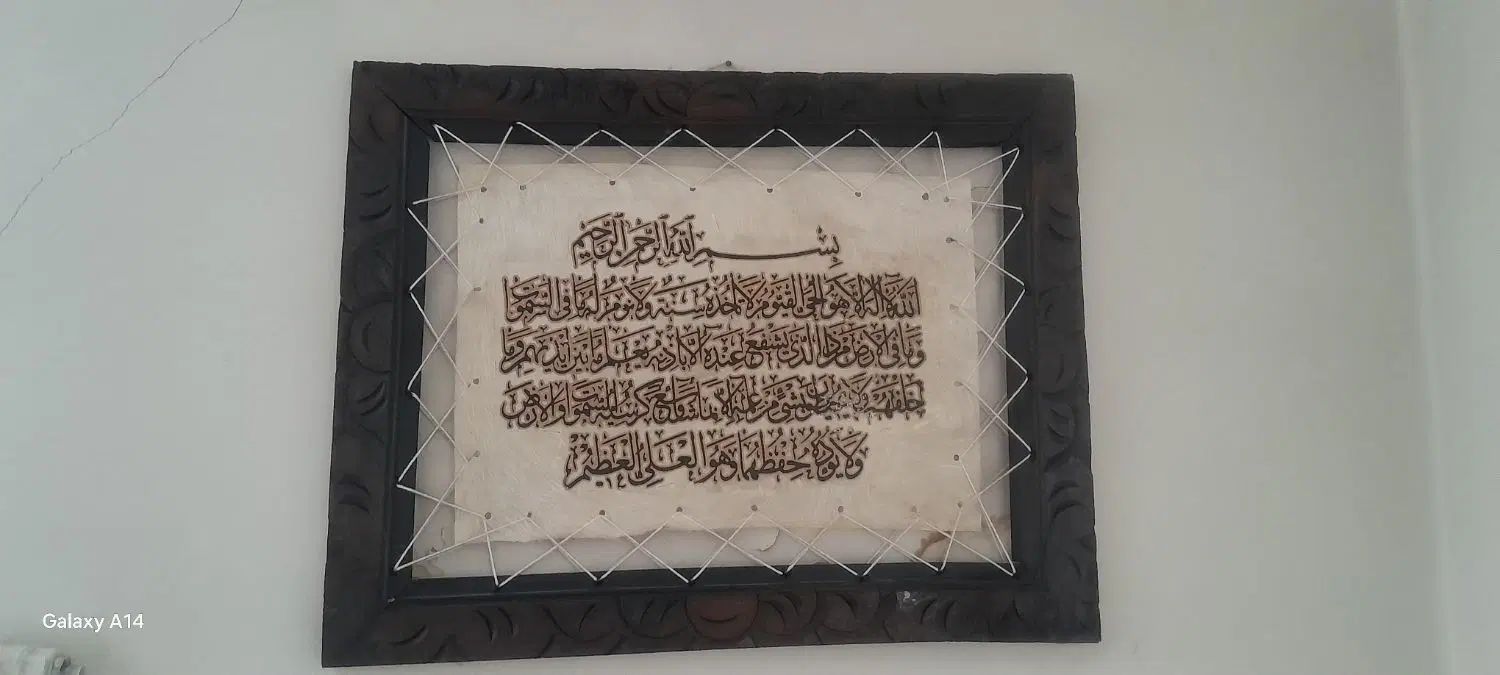 بِسْمِ اللَّهِ الرَّحْمَنِ الرَّحِيمِ
اَللَّهُ لَا إِلَهَ إِلَّا هُوَ الْحَيُّ الْقَيُّومُ لَا تَأْخُذُهُ سِنَةٌ وَلَا نَوْمٌ لَهُ مَا فِي السَّمَوَاتِ
وَمَا فِي الْأَرْضِ مَنْ ذَا الَّذِي يَشْفَعُ عِنْدَهُ إِلَّا بِإِذْنِهِ يَعْلَمُ مَا بَيْنَ أَيْدِيهِمْ وَمَا
خَلْفَهُمْ وَلَا يُحِيطُونَ بِشَيْءٍ مِنْ عِلْمِهِ إِلَّا بِمَا شَاءَ وَسِعَ كُرْسِيُّهُ السَّمَوَاتِ وَالْأَرْضَ
وَلَا يَئُودُهُ حِفْظُهُمَا وَهُوَ الْعَلِيُّ الْعَظِيمُ
Galaxy A14